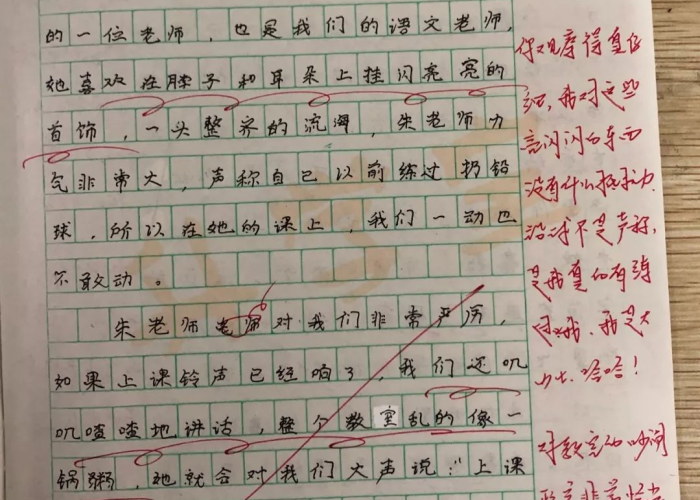 的一位老师，也是我们的语文老师，
她喜欢在脖子和耳朵上挂闪亮亮的
首饰，一头整齐的流海，朱老师力
气非常大，声称自己以前练过扔铅
球，所以在她的课上，我们一动也
不敢动。
朱老师老师对我们非常严厉，
如果上课铃声已经响了，我们还叽
叽喳喳地讲话，整个教室乱的像一
锅粥，她就会对我们大声说："上课
你观察得真仔
细，我对这些
闪闪的东西
没有什么抵抗力
不是声称，
是我真的有练
过哦，我是大
力士，哈哈！
对教室的吵闹